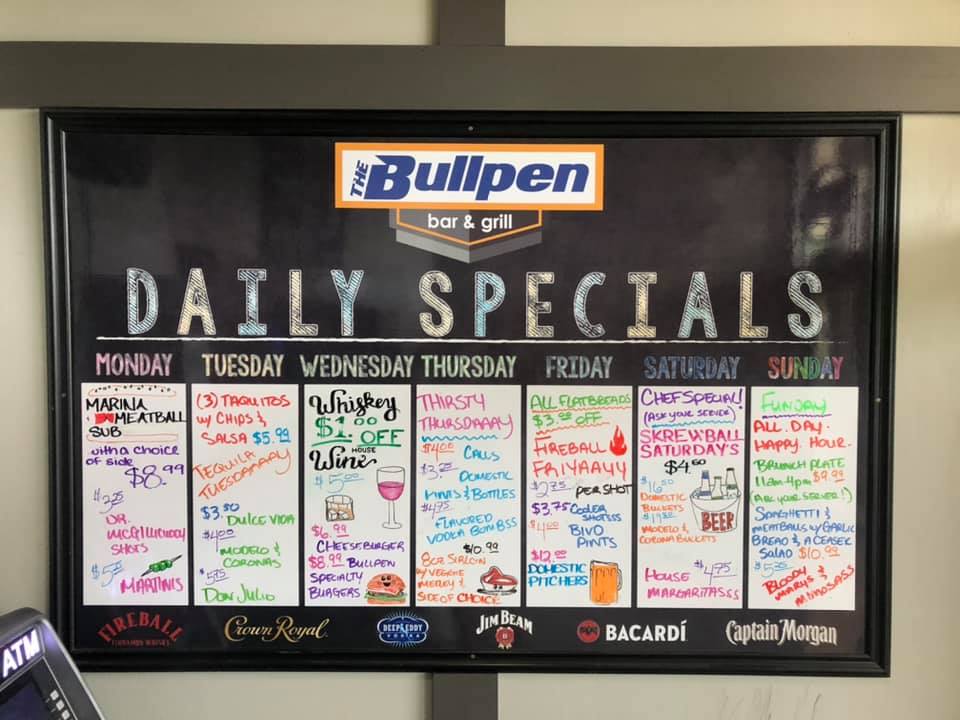 THE Bullpen
bar & grill
DAILY SPECIALS
MONDAY
MARINA
MEATBALL
SUB
with a choice
of side
$8.99
$3.25
DR.
McGILLICUDDY
SHOTS
MARTINIS
TUESDAY
(3) TAQUITOS
w/ CHIPS &
SALSA $5.99
TEQUILA
TUESDAAAAY
$3.50
DULCE VIDA
$4.00
MODELO &
CORONAS
$5.75
DON JULIO
WEDNESDAY
Whiskey
$1.00 OFF
HOUSE
Wine
$5.00
$6.99
CHEESEBURGER
$8.99 BULLPEN
SPECIALTY
BURGERS
THURSDAY
THIRSTY
THURSDAAAY
$4.00 CALLS
DOMESTIC
PINTS & BOTTLES
$4.75
FLAVORED
VODKA BOMBSS
$10.99
8oz SIRLOIN
w/ VEGGIE
MEDLEY &
SIDE OF CHOICE
FRIDAY
ALL FLATBREADS
$3.00 OFF
FIREBALL
FRIYAAYY
$2.75 PER SHOT
$3.75 COOLER
SHOTSSS
$4.00 BIVO
PINTS
$12.00
DOMESTIC
PITCHERS
SATURDAY
CHEF SPECIAL!
(ASK YOUR SERVER)
SKREWBALL
SATURDAY'S
$4.50
$16.50
DOMESTIC
BUCKETS
MODELO &
CORONA BUCKETS
BEER
HOUSE $4.75
MARGARITASSS
SUNDAY
FUNDAY
ALL.DAY.
HAPPY HOUR.
BRUNCH PLATE
11am-4pm $9.99
(ASK YOUR SERVER!)
SPAGHETTI &
MEATBALLS w/ GARLIC
BREAD & A CEASER
SALAD $10.99
BLOODY
MARYS &
MIMOSASS
FIREBALL
CINNAMON WHISKY
Crown Royal
DEEP EDDY
VODKA
JIM BEAM
BACARDÍ
Captain Morgan
ATM